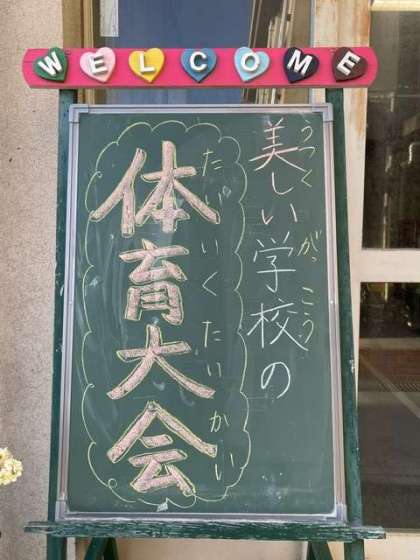 WELCOME
美しい学校の
うつく がっこう
体育大会
たいいくたいかい